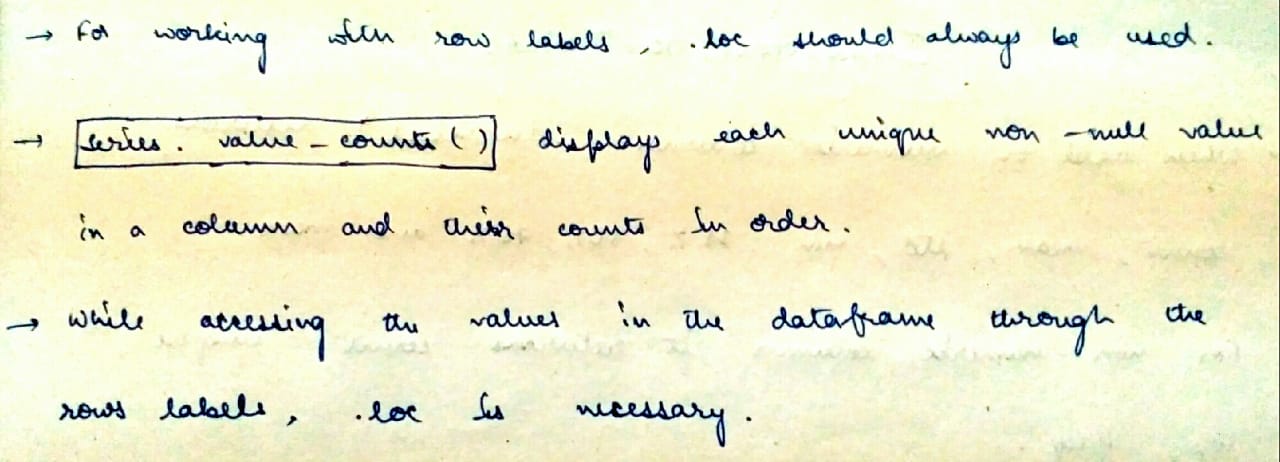 → For working with row labels, .loc should always be used.
→ series. value_counts() displays each unique non-null value
in a column and their counts in order.
→ While accessing the values in the dataframe through the
rows labels, .loc is necessary.